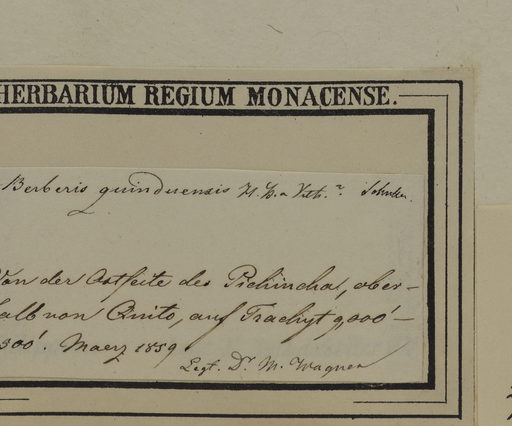 HERBARIUM REGIUM MONACENSE.
Berberis quinduensis H. B.
Von der Ostseite des Pichincha, ober-
halb von Quito, auf Trachyt 9,000'–
300'. Maerz 1859
Legt. Dr. M. Wagner